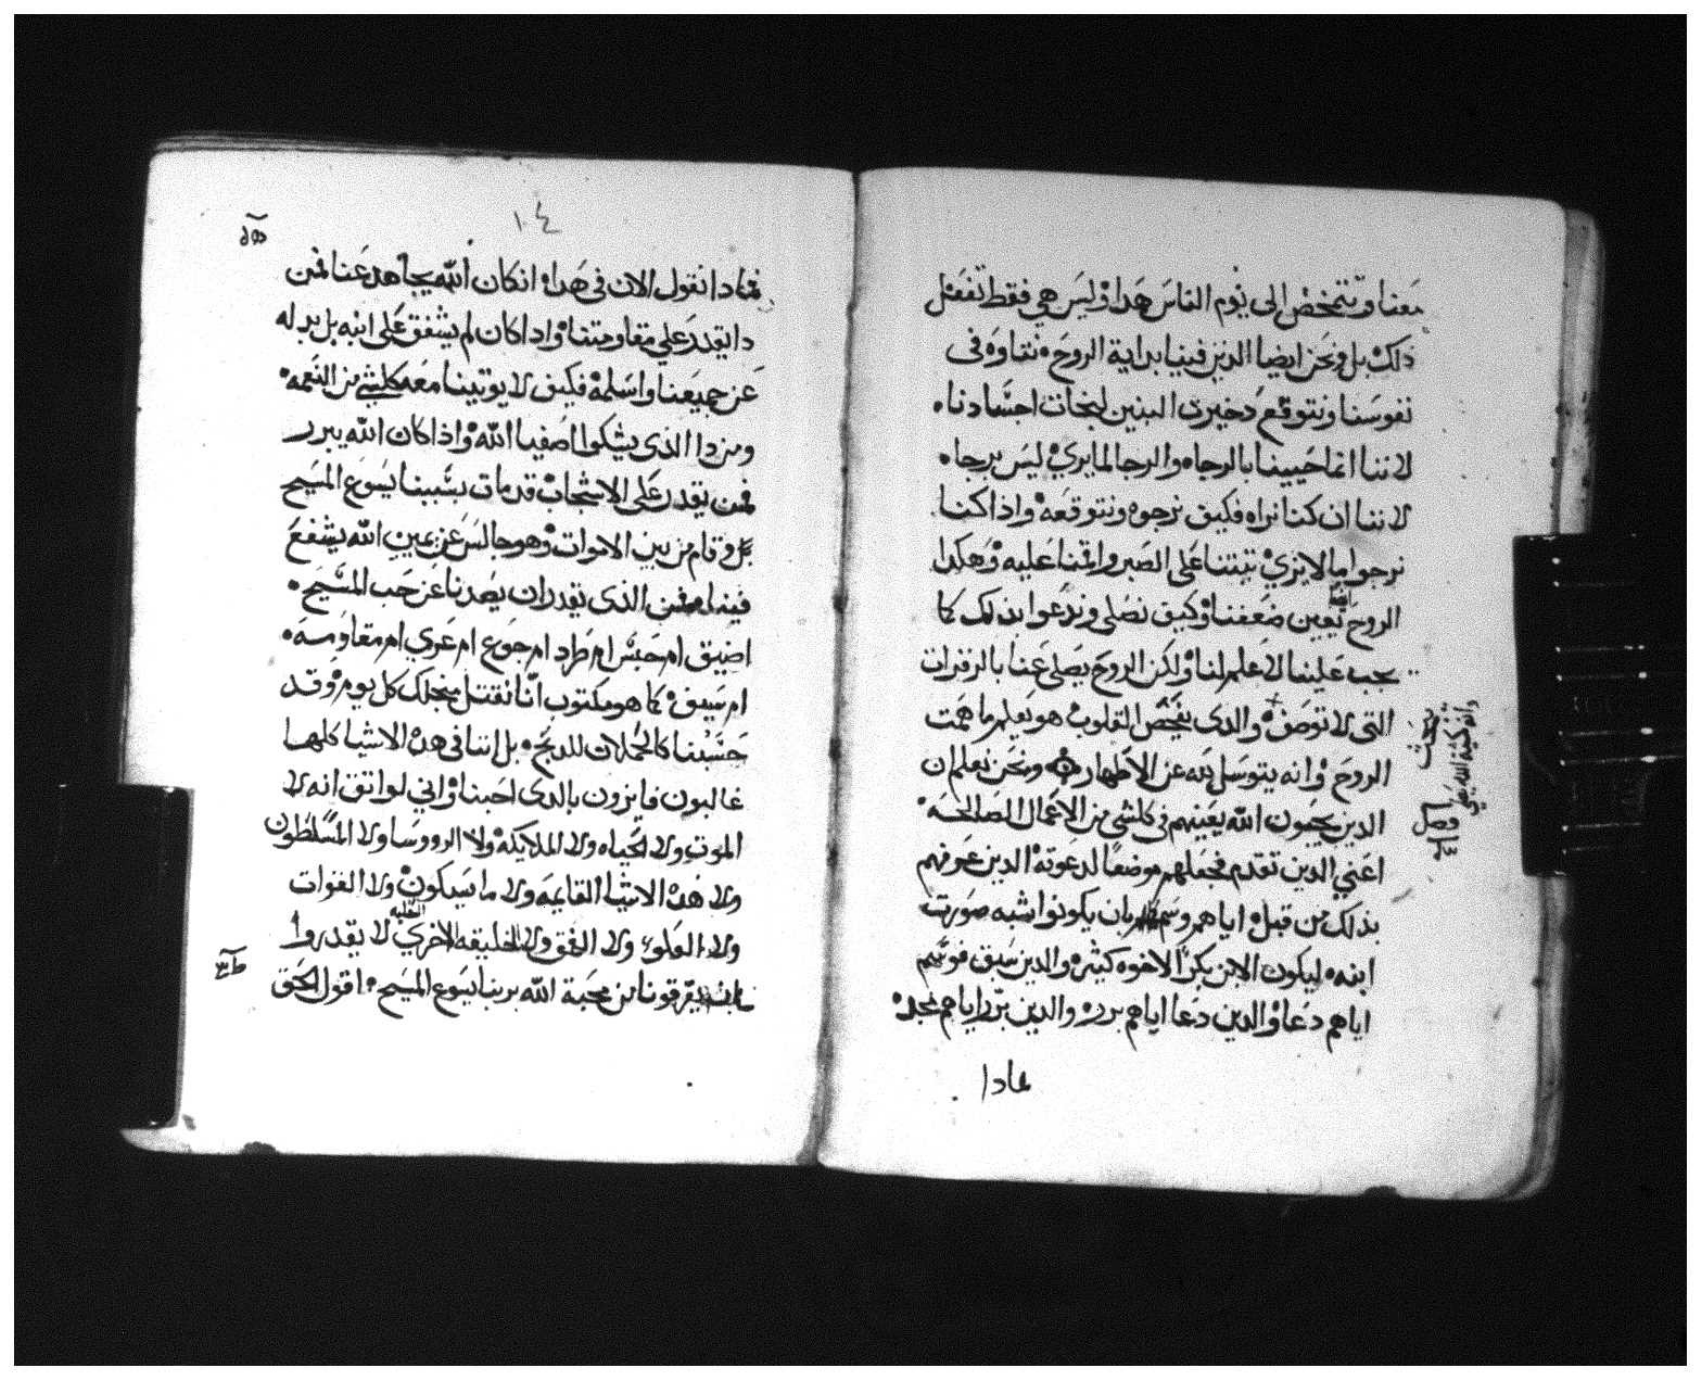 معنا وتتمخض الى يوم الناس هدا وليس هي فقط تفعل
ذلك بل ونحن ايضا الدين فينا بداية الروح نتاوه فى
نفوسنا ونتوقع دخيرت البنين لنجات اجسادنا
لاننا انما حيينا بالرجاه والرجا لما يري ليس برجاه
لاننا ان كنا نراه فكيف نرجوه ونتوقعه واذا كنا
نرجوا ما لا يري تبتنا على الصبر واقمنا عليه وهكدا
الروح ايضا يعين ضعفنا وكيف نصلى وندعوا بذلك كما
يجب علينا لا علم لنا ولكن الروح يصلى عنا بالزفرات
التى لا توصف والدى يفحص القلوب هو يعلم ما همت
الروح وانه يتوسل لله عن الاطهار ونحن نعلم ان
الدين يحبون الله يعينهم فى كلشى من الاعمال الصالحه
اعني الدين تقدم فجعلهم موضعا لدعوته الدين عرفهم
بذلك من قبل اياهم وسمهم بان يكونوا شبه صورت
ابنه ليكون الابن بكر الاخوه كثيره والدين سبق فوسم
اياهم دعا والدين دعا اياهم برره والدين برر اياهم مجده
فمادا
وصل
١٠٤
فمادا نقول الان فى هدا انكان الله يجاهد عنا فمن
دا يقدر علي مقاومتنا واداكان لم يشفق على ابنه بل بدله
عن جميعنا واسلمه فكيف لا يوتينا معه كلشي من النعمه
ومن دا الذى يشكوا اصفيا الله واذا كان الله يبرر
فمن يقدر على الاشجاب قد مات بسببنا يسوع المسيح
بل وقام من بين الاموات وهو جالس عن يمين الله يشفع
فينا فمن الذى يقدر ان يصدنا عن حب المسيح
اضيق ام حبس ام طراد ام جوع ام عري ام مقاومه
ام سيف كما هو مكتوب انا نقتل منجلك كل يوم وقد
حسبنا كالحملان للدبح بل اننا فى هده الاشيا كلها
غالبون فايزون بالدى احبنا واني لواتق انه لا
الموت ولا الحياه ولا الملايكه ولا الروسا ولا المسلطون
ولا هده الاشيا القايمه ولا ما سيكون ولا القوات
ولا العلو ولا العمق ولا الخليقه الاخري لا يقدروا
يفرقونا من محبة الله بربنا يسوع المسيح اقول الحق